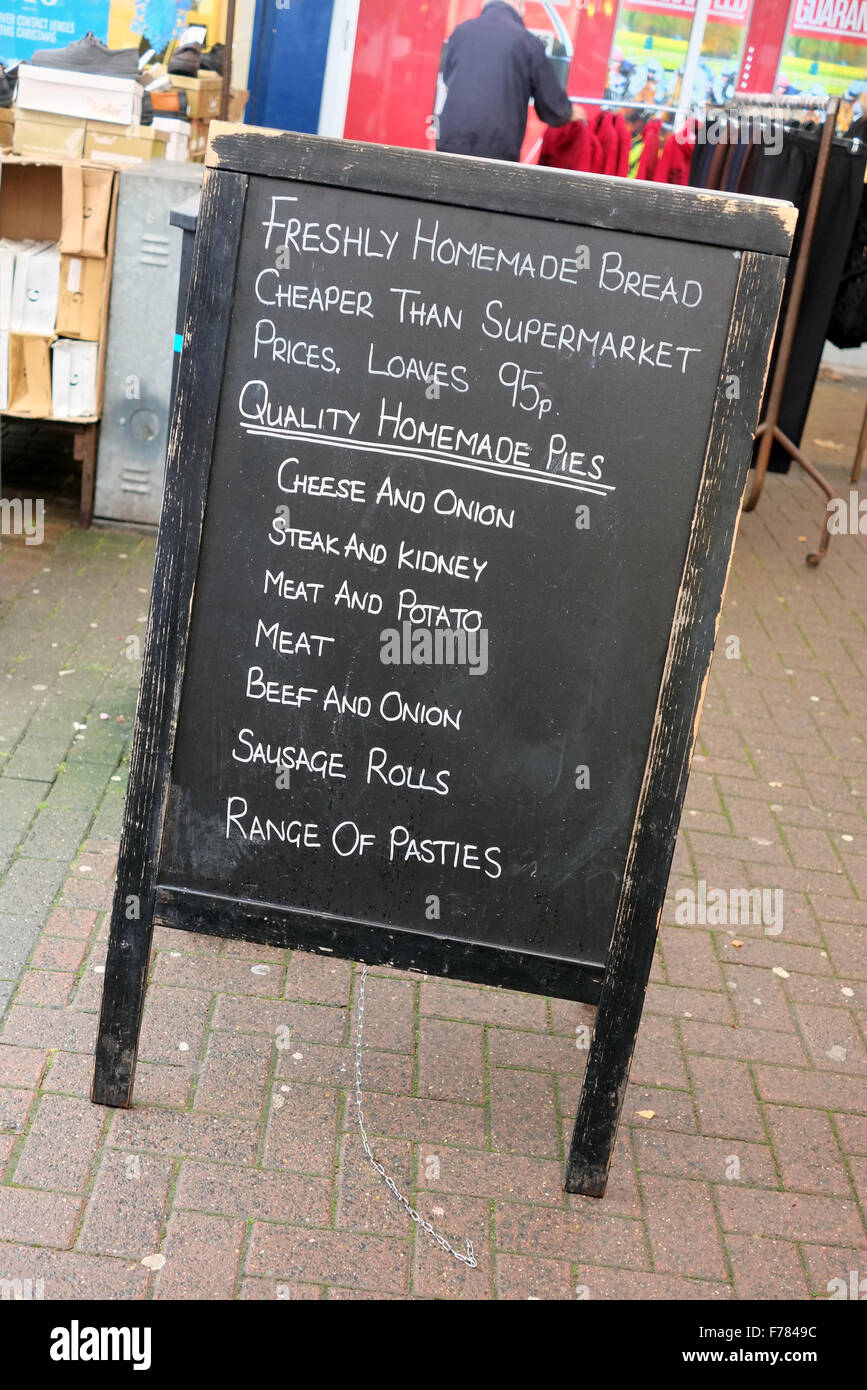 GUARAN
OVER ABOUT
CONTACT LENSES
THIS CHRISTMAS
FRESHLY HOMEMADE BREAD
CHEAPER THAN SUPERMARKET
PRICES. LOAVES 95p.
QUALITY HOMEMADE PIES
CHEESE AND ONION
STEAK AND KIDNEY
MEAT AND POTATO
MEAT
BEEF AND ONION
SAUSAGE ROLLS
RANGE OF PASTIES
alamy stock photo
F7849C
www.alamy.com